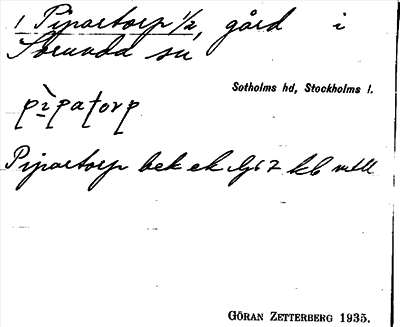 1 Pipartorp 1/2, gård i
Sorunda sn
Sotholms hd, Stockholms l.
pìpatorp
Pipartorp bek ek Gs 7 kb
GÖRAN ZETTERBERG 1935.